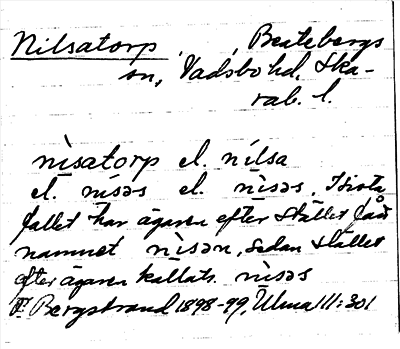 Nilsatorp, Beatebergs
sn, Vadsbo hd, Ska-
rab. l.
nìsatorp el. nílsa
el. nísəs el. nìsəs. I sista
fallet har ägaren efter stället fått
namnet nìsən, sedan stället
efter ägaren kallats nìsəs
Bergstrand 1898-99, Ulma 111:301